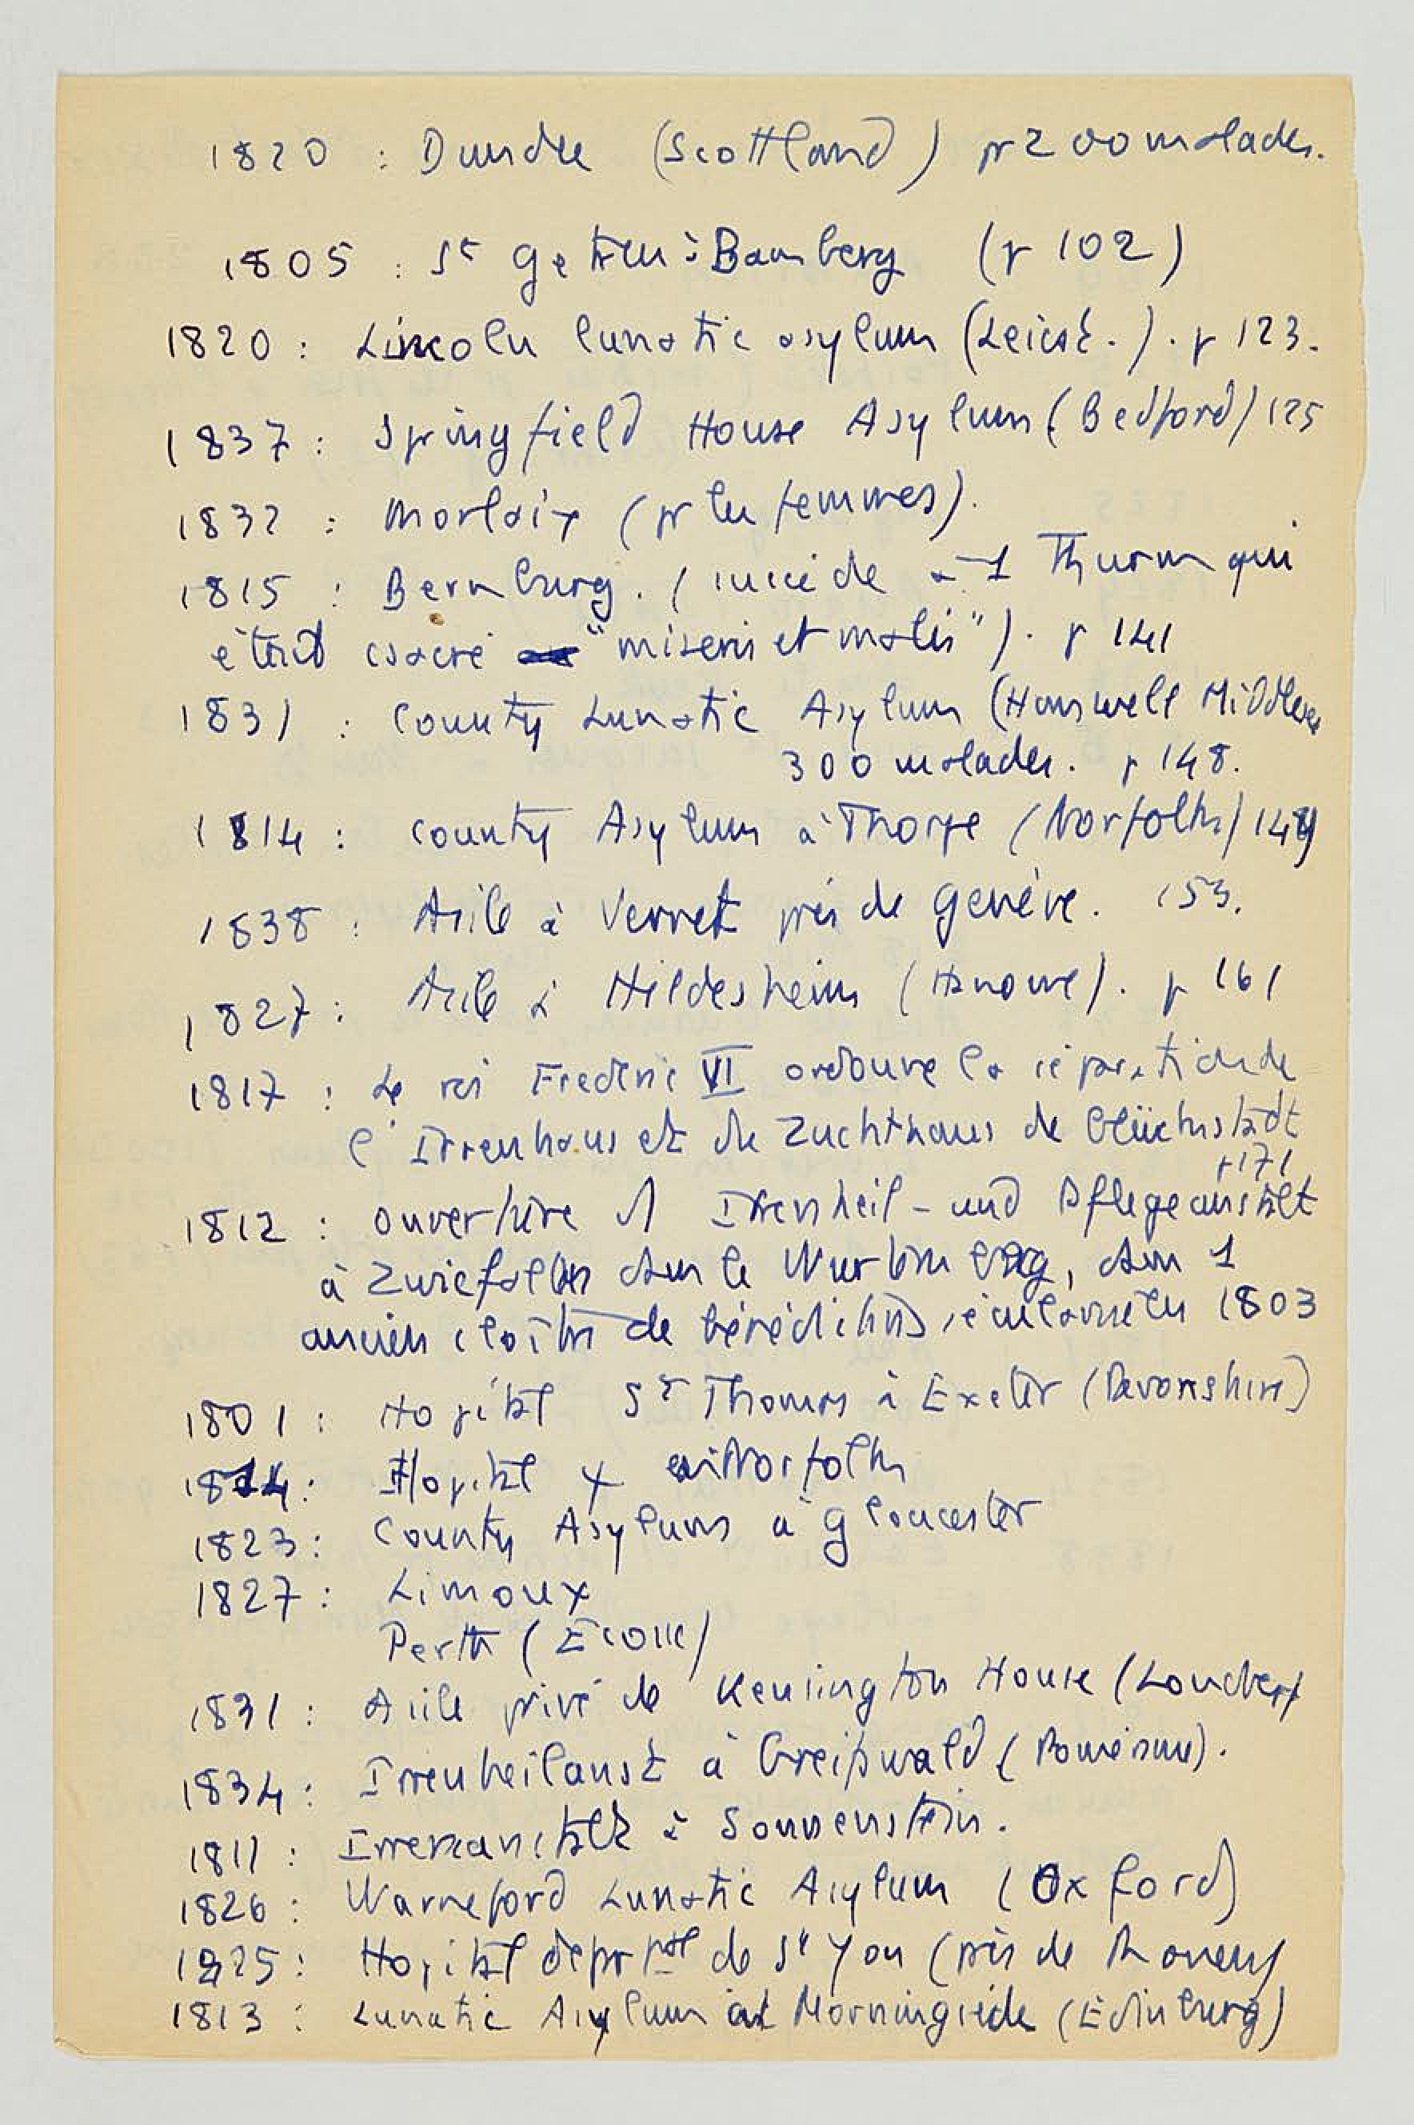 1820 : Dundee (Scottland) pr 200 malades.
1805 : St Getreu à Bamberg (p 102)
1820 : Lincoln lunatic asylum (Leicest.). p 123.
1837 : Springfield House Asylum (Bedford) 125
1832 : Morlaix (pr les femmes).
1815 : Bernburg. (succède à 1 Thurm qui
était csacré "miseris et malis"). p 141
1831 : County Lunatic Asylum (Hanwell Middlesex
300 malades. p 148.
1814 : County Asylum à Thorpe (Norfolk) 149
1838 : Asile à Vernet près de Genève. 153.
1827 : Asile à Hildesheim (Hanovre). p 161
1817 : Le roi Frederic VI ordonne la séparation de
l'Irrenhaus et du Zuchthaus de Glückstadt
p 171
1812 : ouverture d'1 Irrenheil- und Pflegeanstalt
à Zwiefalten dans le Wurtemberg, dans 1
ancien cloître de bénédictins sécularisé en 1803
1801 : Hopital St Thomas à Exeter (Devonshire)
1814 : Hopital x Norfolk
1823 : County Asylum à Gloucester
1827 : Limoux
Perth (Ecosse)
1831 : Asile privé de Kensington House (Londres)
1834 : Irrenheilanst à Greifswald (Poméranie).
1811 : Irrenanstalt à Sonnenstein.
1826 : Warneford Lunatic Asylum (Oxford)
1825 : Hopital départal de St Yon (près de Rouen)
1813 : Lunatic Asylum at Morningside (Edinburg)